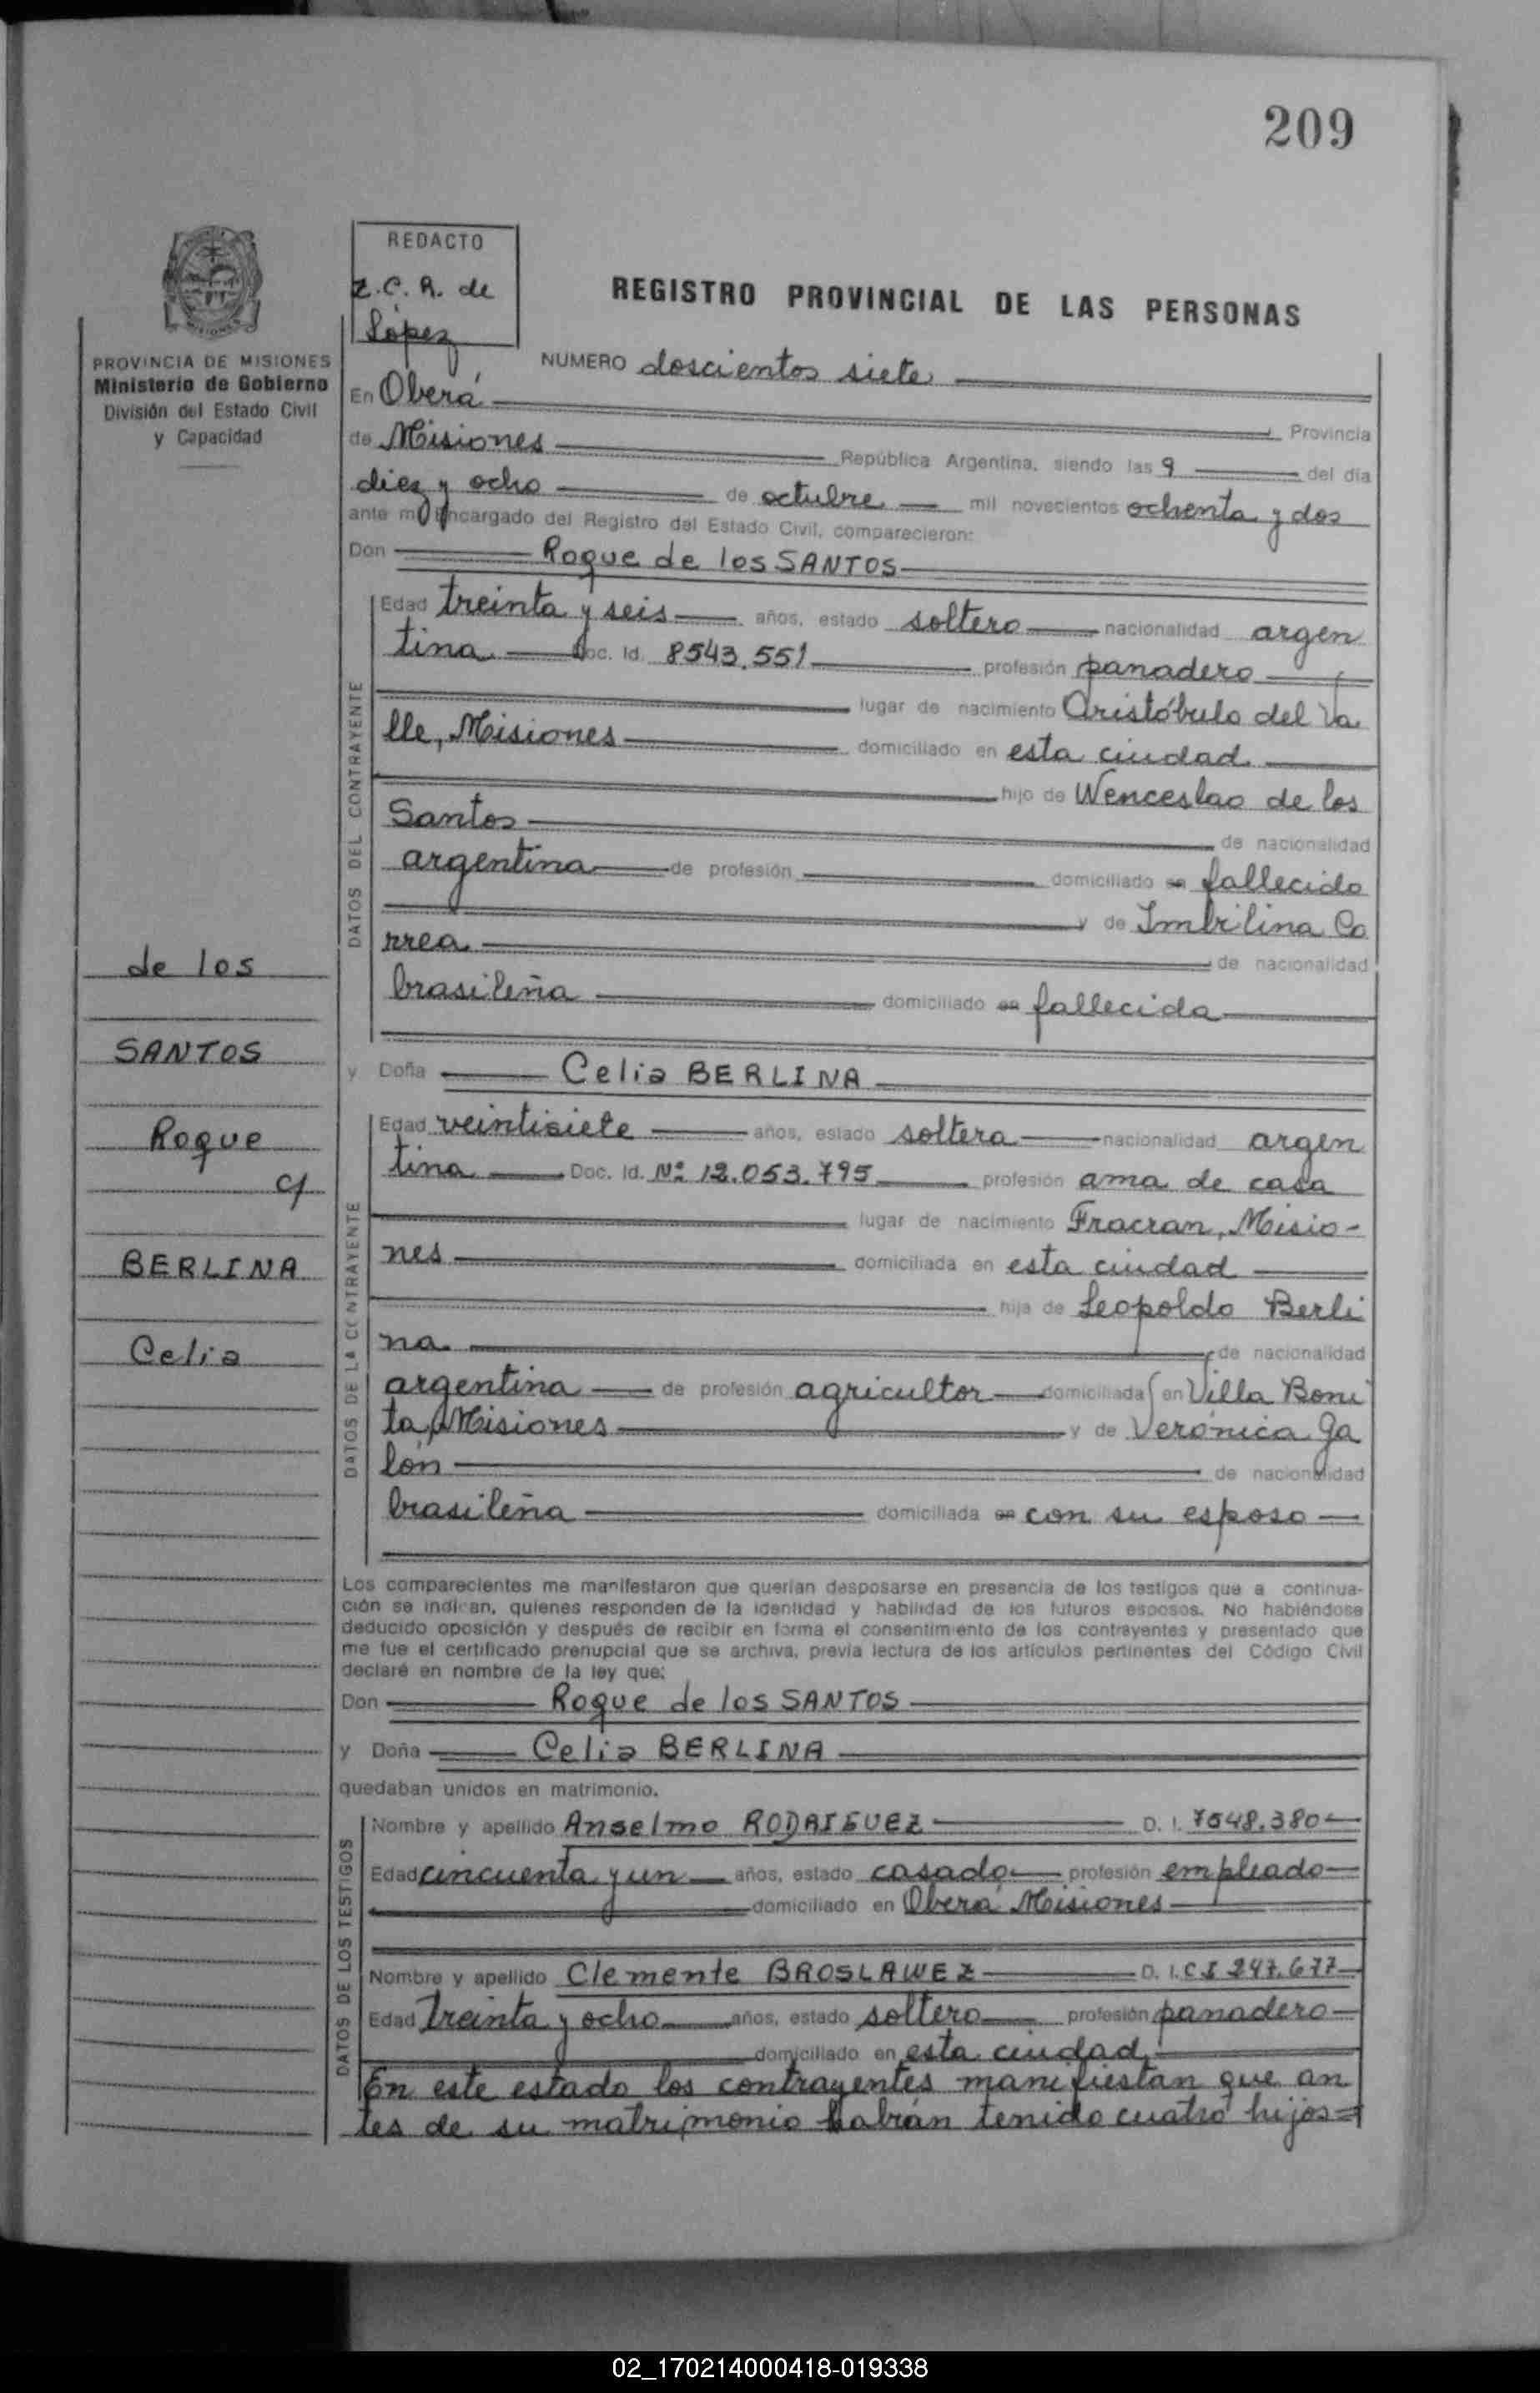 209
REDACTO
Z.C.R. de
López
REGISTRO PROVINCIAL DE LAS PERSONAS
PROVINCIA DE MISIONES
Ministerio de Gobierno
División del Estado Civil
y Capacidad
NUMERO doscientos siete
En Oberá
Provincia
de Misiones República Argentina, siendo las 9 del día
diez y ocho de octubre mil novecientos ochenta y dos
ante mí Encargado del Registro del Estado Civil, comparecieron:
Don Roque de los SANTOS
DATOS DEL CONTRAYENTE
Edad treinta y seis años, estado soltero nacionalidad argen
tina Doc. Id. 8543.551 profesión panadero
lugar de nacimiento Aristóbulo del Va
lle, Misiones domiciliado en esta ciudad
hijo de Wenceslao de los
Santos de nacionalidad
argentina de profesión domiciliado en fallecido
y de Imbrilina Co
rrea de nacionalidad
brasileña domiciliado en fallecida
y Doña Celia BERLINA
DATOS DE LA CONTRAYENTE
Edad veintisiete años, estado soltera nacionalidad argen
tina Doc. Id. Nº 12.053.795 profesión ama de casa
lugar de nacimiento Fracran, Misio-
nes domiciliada en esta ciudad
hija de Leopoldo Berli
na de nacionalidad
argentina de profesión agricultor domiciliada en Villa Boni
ta, Misiones y de Verónica Ga
lón de nacionalidad
brasileña domiciliada en con su esposo
de los
SANTOS
Roque
c/
BERLINA
Celia
Los comparecientes me manifestaron que querían desposarse en presencia de los testigos que a continua-
ción se indican, quienes responden de la identidad y habilidad de los futuros esposos. No habiéndose
deducido oposición y después de recibir en forma el consentimiento de los contrayentes y presentado que
me fue el certificado prenupcial que se archiva, previa lectura de los artículos pertinentes del Código Civil
declaré en nombre de la ley que:
Don Roque de los SANTOS
y Doña Celia BERLINA
quedaban unidos en matrimonio.
DATOS DE LOS TESTIGOS
Nombre y apellido Anselmo RODRIGUEZ D. I. 7548.380
Edad cincuenta y un años, estado casado profesión empleado
domiciliado en Oberá Misiones
Nombre y apellido Clemente BROSLAWEZ D. I. C I 247.677
Edad treinta y ocho años, estado soltero profesión panadero
domiciliado en esta ciudad
En este estado los contrayentes manifiestan que an
tes de su matrimonio habían tenido cuatro hijos=
02_170214000418-019338